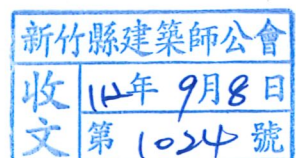 新竹縣建築師公會
收文
112年9月8日
第1024號